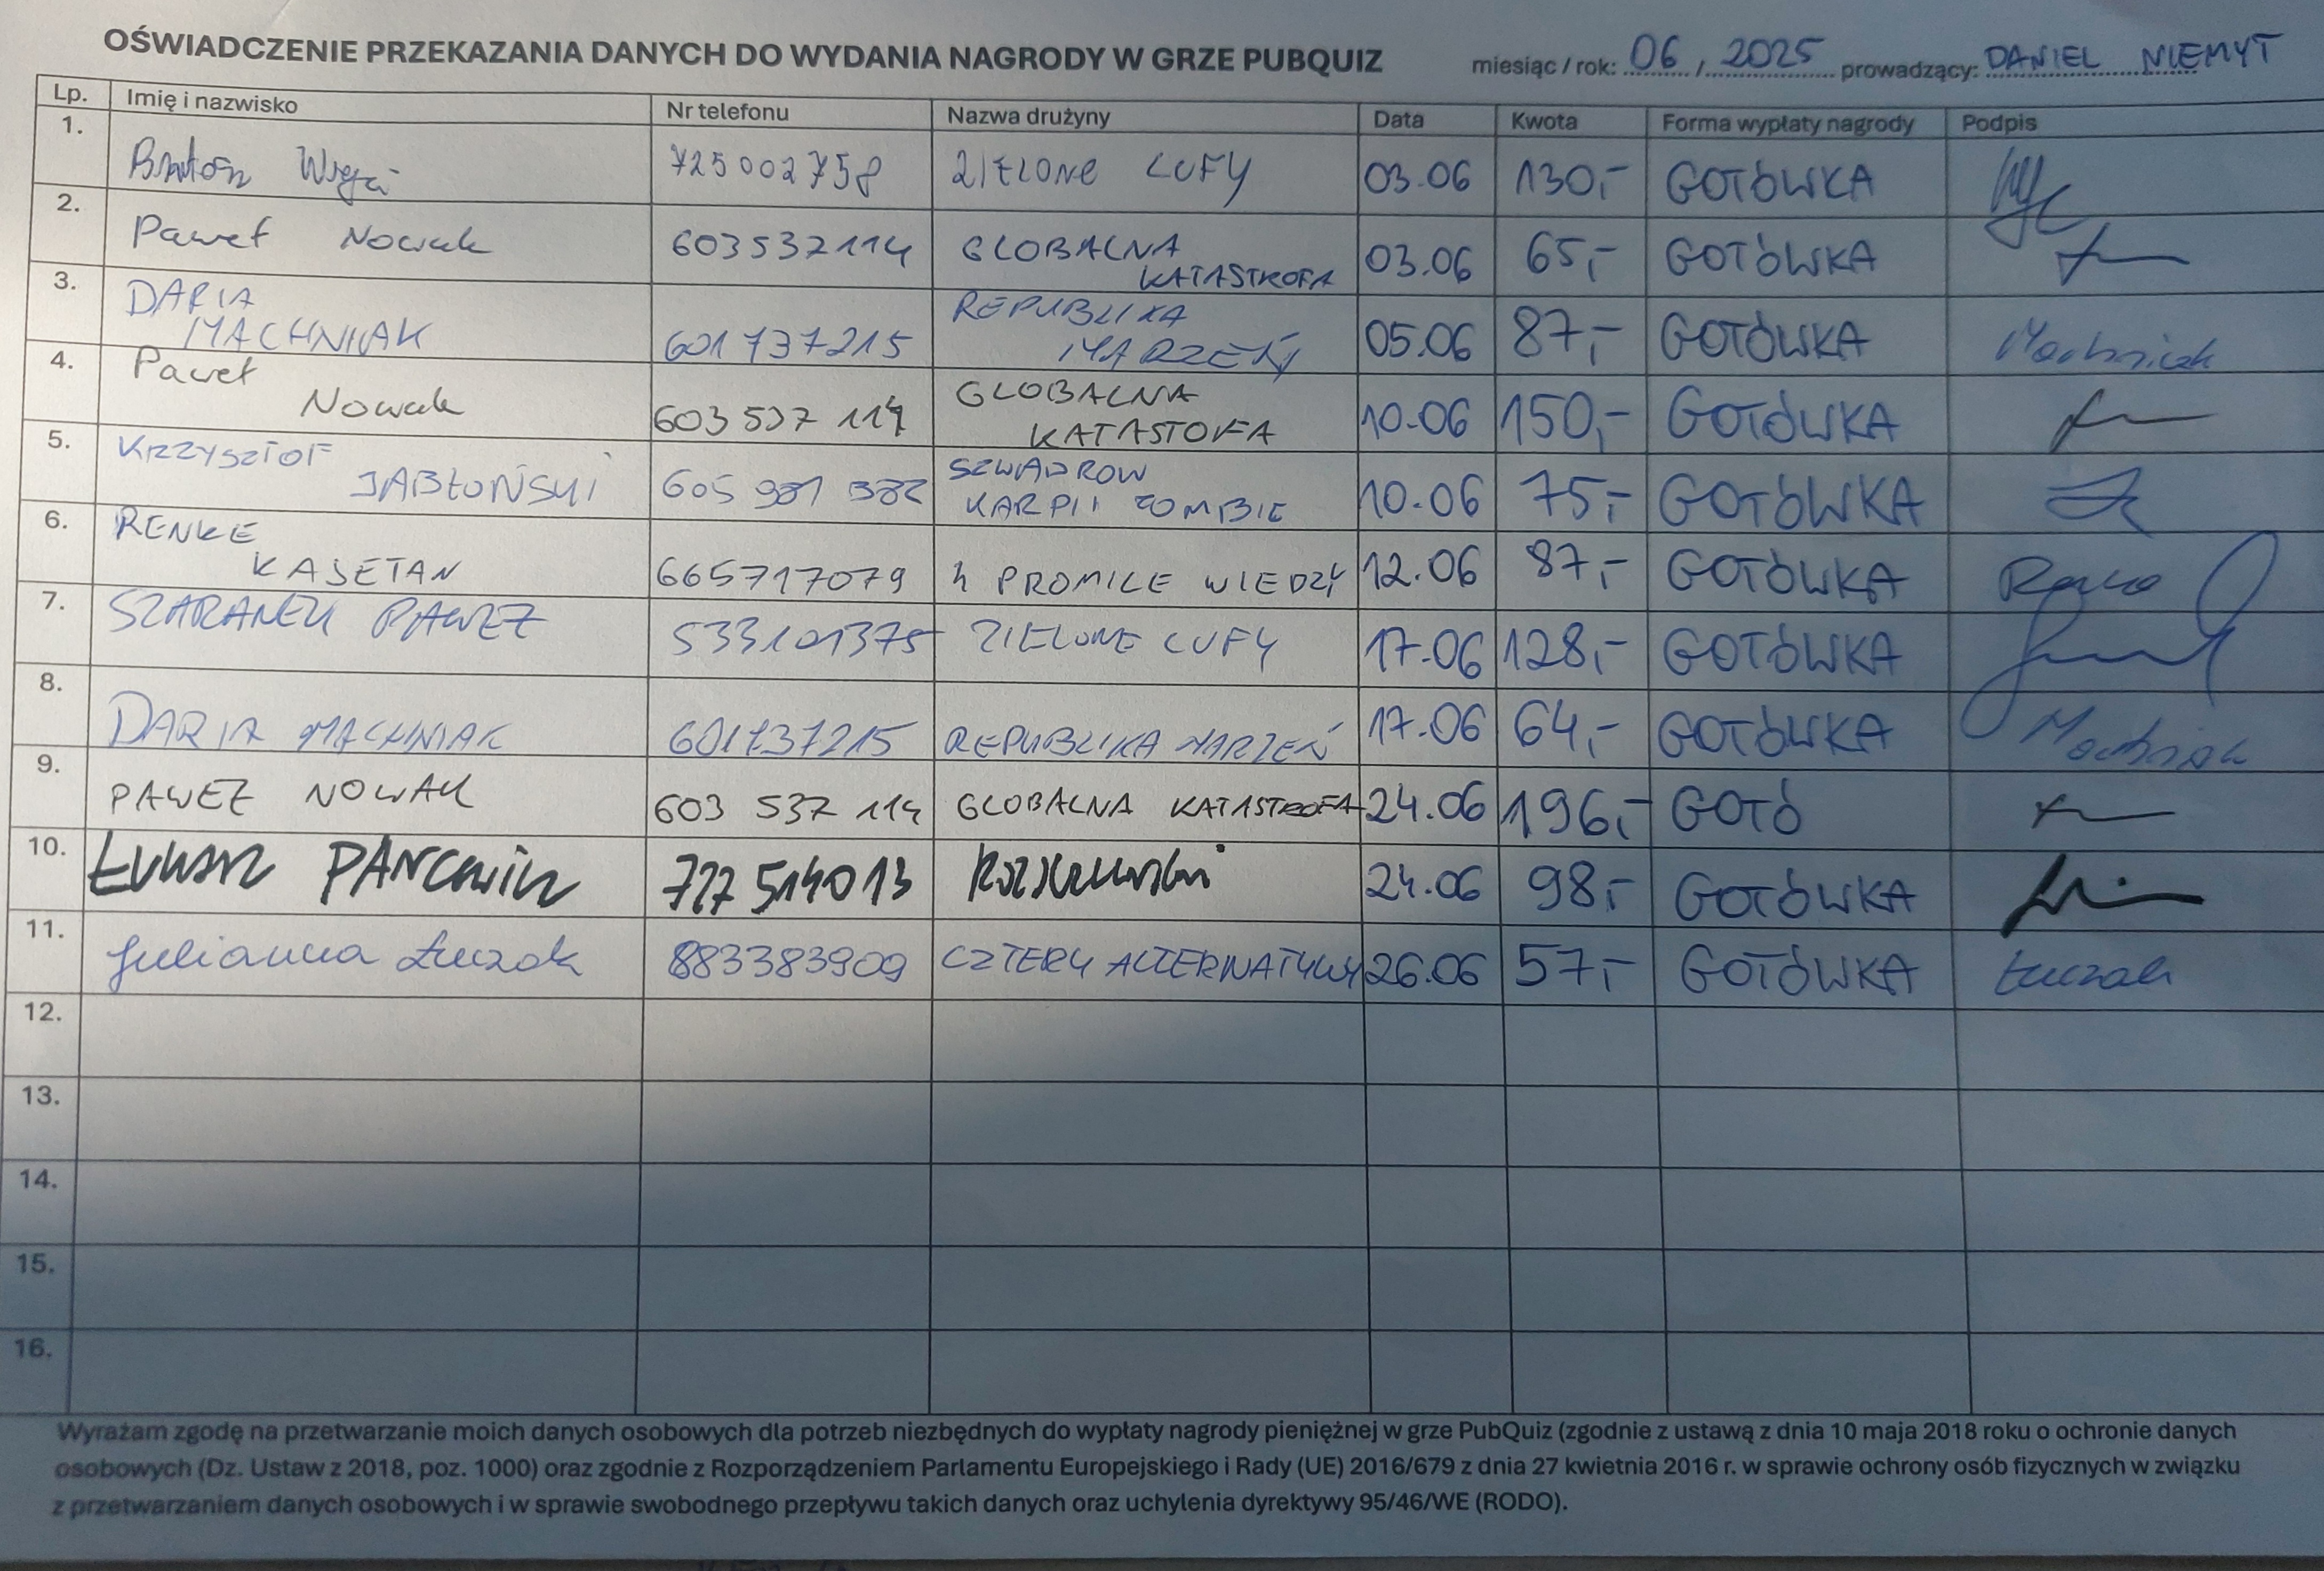 OŚWIADCZENIE PRZEKAZANIA DANYCH DO WYDANIA NAGRODY W GRZE PUBQUIZ miesiąc / rok: 06 / 2025 prowadzący: DANIEL NIEMYT
Lp. Imię i nazwisko Nr telefonu Nazwa drużyny Data Kwota Forma wypłaty nagrody Podpis
1. 725002758 ZIELONE LUFY 03.06 130,- GOTÓWKA
2. Paweł Nowak 603537114 GLOBALNA KATASTROFA 03.06 65,- GOTÓWKA
3. DARIA MACHNIAK 601737215 REPUBLIKA MARZEŃ 05.06 87,- GOTÓWKA Machniak
4. Paweł Nowak 603 537 114 GLOBALNA KATASTOFA 10.06 150,- GOTÓWKA
5. KRZYSZTOF JABŁOŃSKI 605 981 382 SZWADRON KARPII ZOMBIE 10.06 75,- GOTÓWKA
6. RENKE KAJETAN 665717079 4 PROMILE WIEDZY 12.06 87,- GOTÓWKA
7. SZARANEK PAWEŁ 533101375 ZIELONE LUFY 17.06 128,- GOTÓWKA
8. DARIA MACHNIAK 601737215 REPUBLIKA MARZEŃ 17.06 64,- GOTÓWKA Machniak
9. PAWEŁ NOWAK 603 537 114 GLOBALNA KATASTROFA 24.06 196,- GOTÓ
10. 727 514013 24.06 98,- GOTÓWKA
11. Julianna Łuczak 883383909 CZTERY ALTERNATYWY 26.06 57,- GOTÓWKA Łuczak
12.
13.
14.
15.
16.
Wyrażam zgodę na przetwarzanie moich danych osobowych dla potrzeb niezbędnych do wypłaty nagrody pieniężnej w grze PubQuiz (zgodnie z ustawą z dnia 10 maja 2018 roku o ochronie danych
osobowych (Dz. Ustaw z 2018, poz. 1000) oraz zgodnie z Rozporządzeniem Parlamentu Europejskiego i Rady (UE) 2016/679 z dnia 27 kwietnia 2016 r. w sprawie ochrony osób fizycznych w związku
z przetwarzaniem danych osobowych i w sprawie swobodnego przepływu takich danych oraz uchylenia dyrektywy 95/46/WE (RODO).